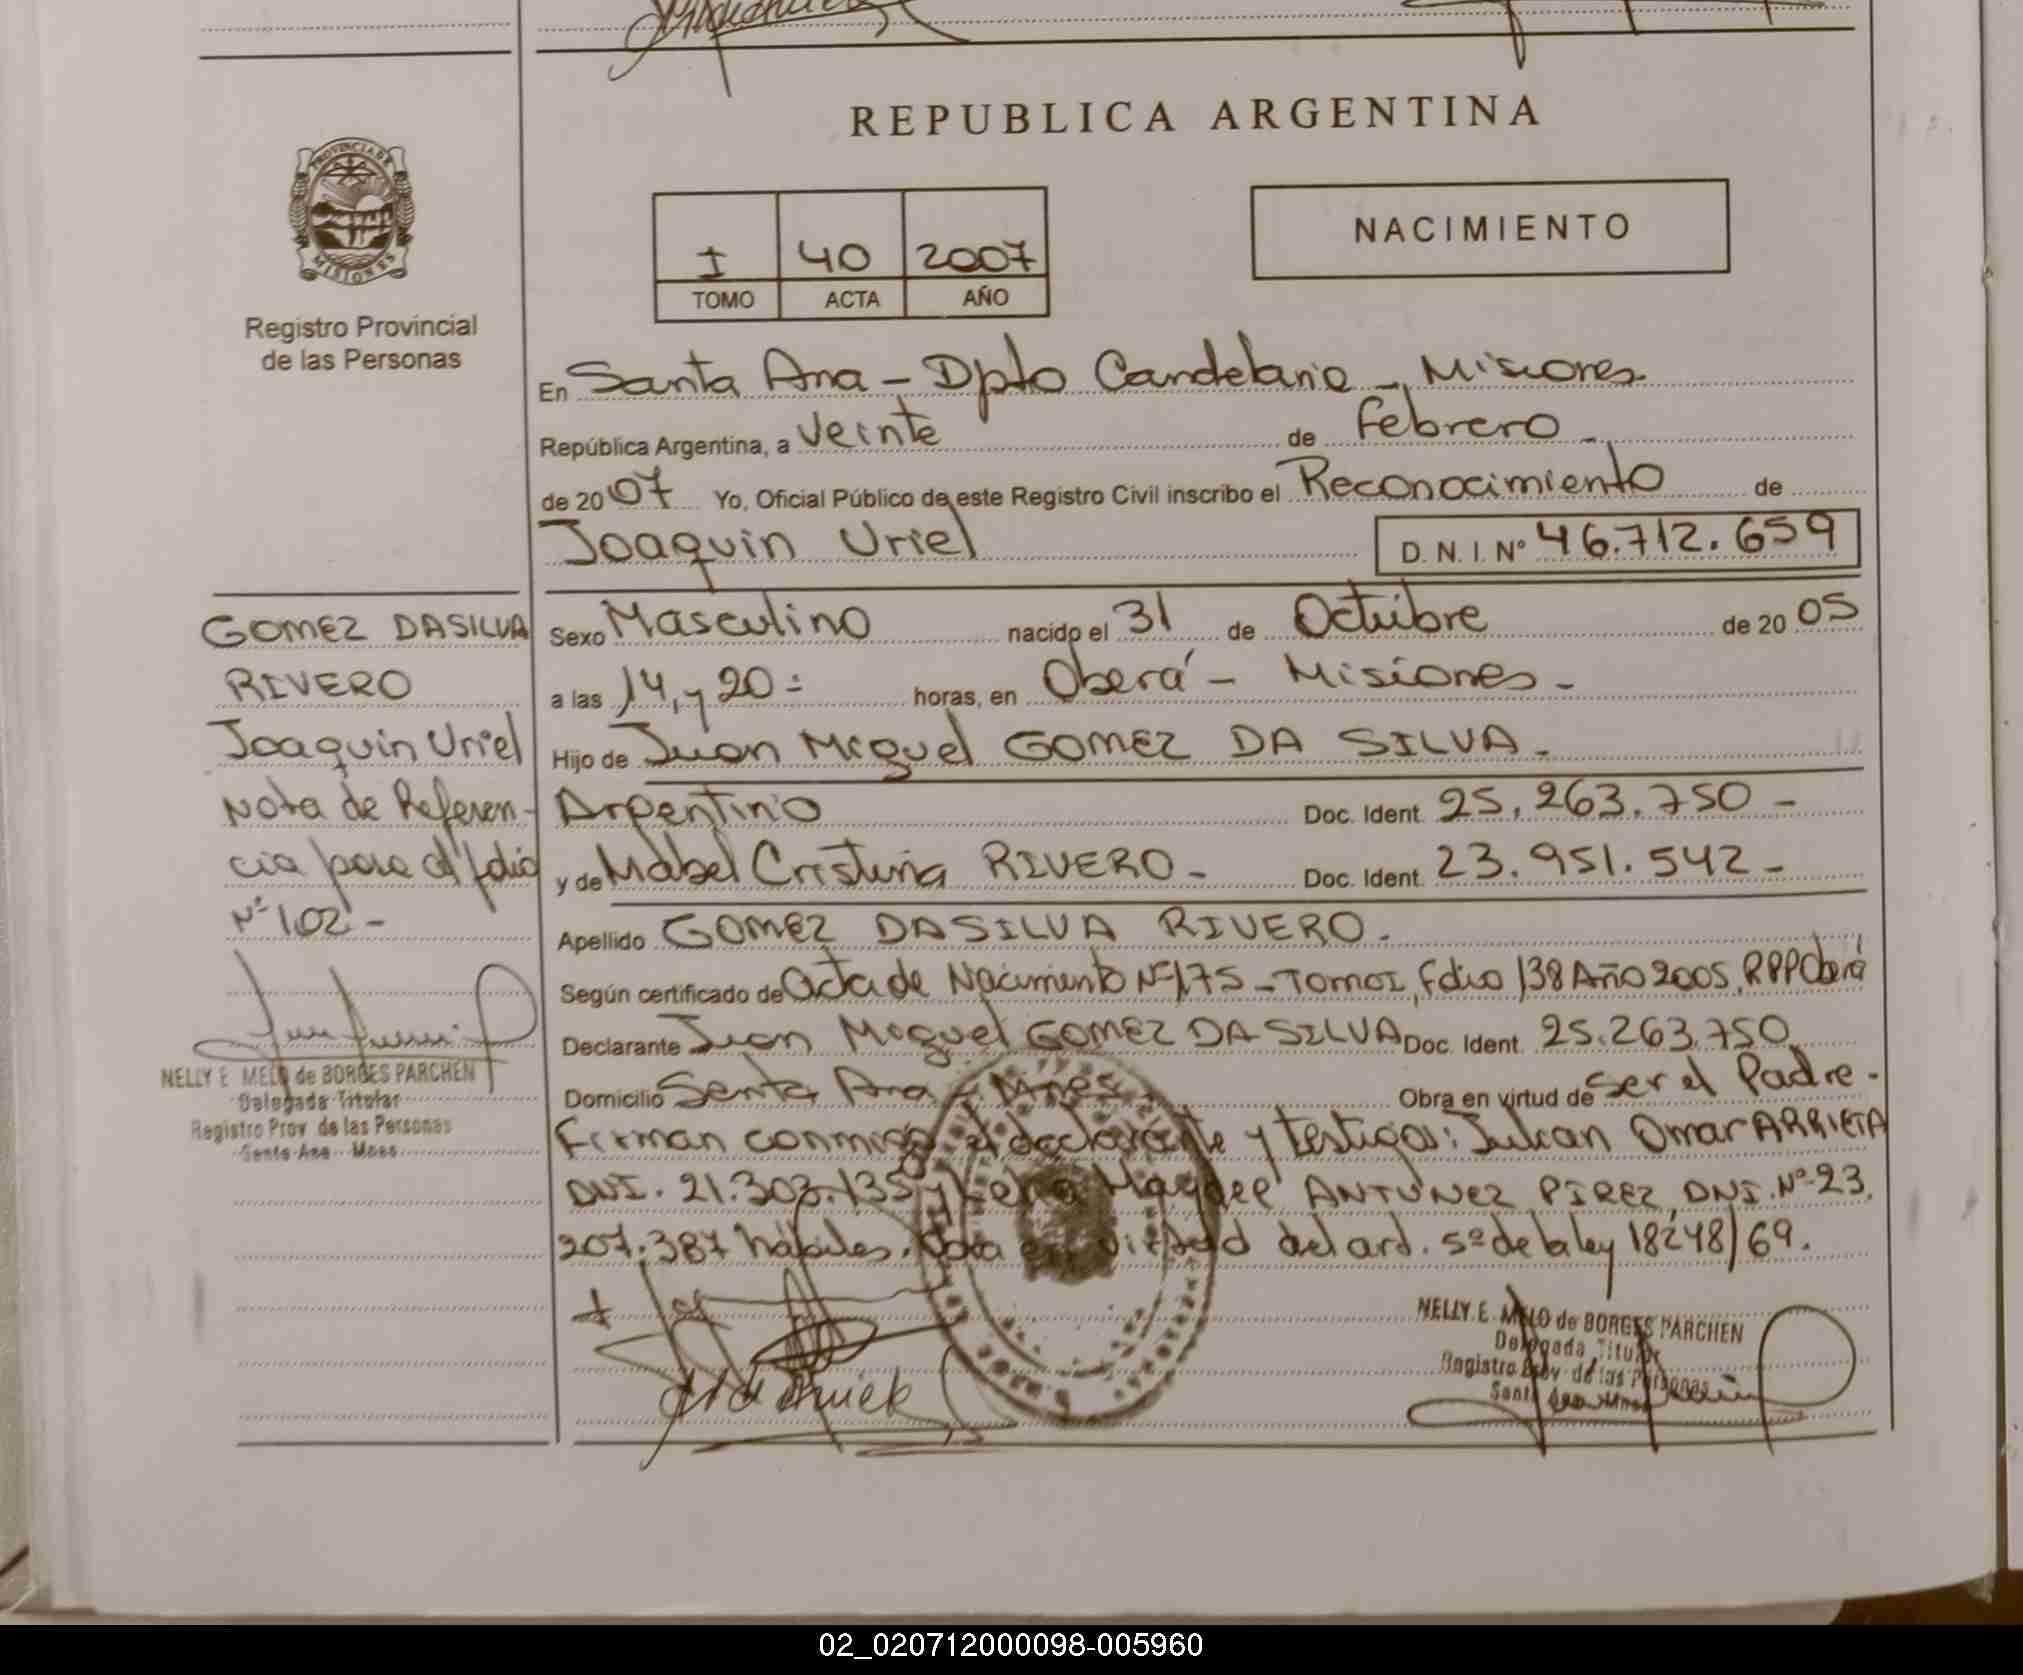 REPUBLICA ARGENTINA
PROVINCIA DE
MISIONES
Registro Provincial
de las Personas
NACIMIENTO
I 40 2007
TOMO ACTA AÑO
En Santa Ana - Dpto Candelaria - Misiones
República Argentina, a Veinte de Febrero -
de 2007 Yo, Oficial Público de este Registro Civil inscribo el Reconocimiento de
Joaquin Uriel D.N.I. Nº 46.712.659
GOMEZ DASILVA
RIVERO
Joaquin Uriel
Nota de Referen-
cia para el folio
Nº 102 -
NELLY E. MELO de BORGES PARCHEN
Delegada Titular
Registro Prov. de las Personas
Santa Ana - Mnes
Sexo Masculino nacido el 31 de Octubre de 2005
a las 14, y 20 = horas, en Oberá - Misiones -
Hijo de Juan Miguel GOMEZ DA SILVA -
Argentino Doc. Ident. 25.263.750 -
y de Mabel Cristina RIVERO - Doc. Ident. 23.951.542 -
Apellido GOMEZ DASILVA RIVERO.
Según certificado de Acta de Nacimiento Nº 175 - Tomo I, Folio 138 Año 2005, RPP Oberá
Declarante Juan Miguel GOMEZ DA SILVA Doc. Ident. 25.263.750
Domicilio Santa Ana - Mnes Obra en virtud de Ser el Padre -
Firman conmigo el declarante y testigos: Julian Omar ARRIETA
DNI. 21.303.135 y Magdee ANTUNEZ PIREZ, DNI. Nº 23.
207.387 hábiles. en virtud del art. 5º de la ley 18248/69.
NELLY E. MELO de BORGES PARCHEN
Delegada Titular
Registro Prov. de las Personas
Santa Ana Mnes
02_020712000098-005960